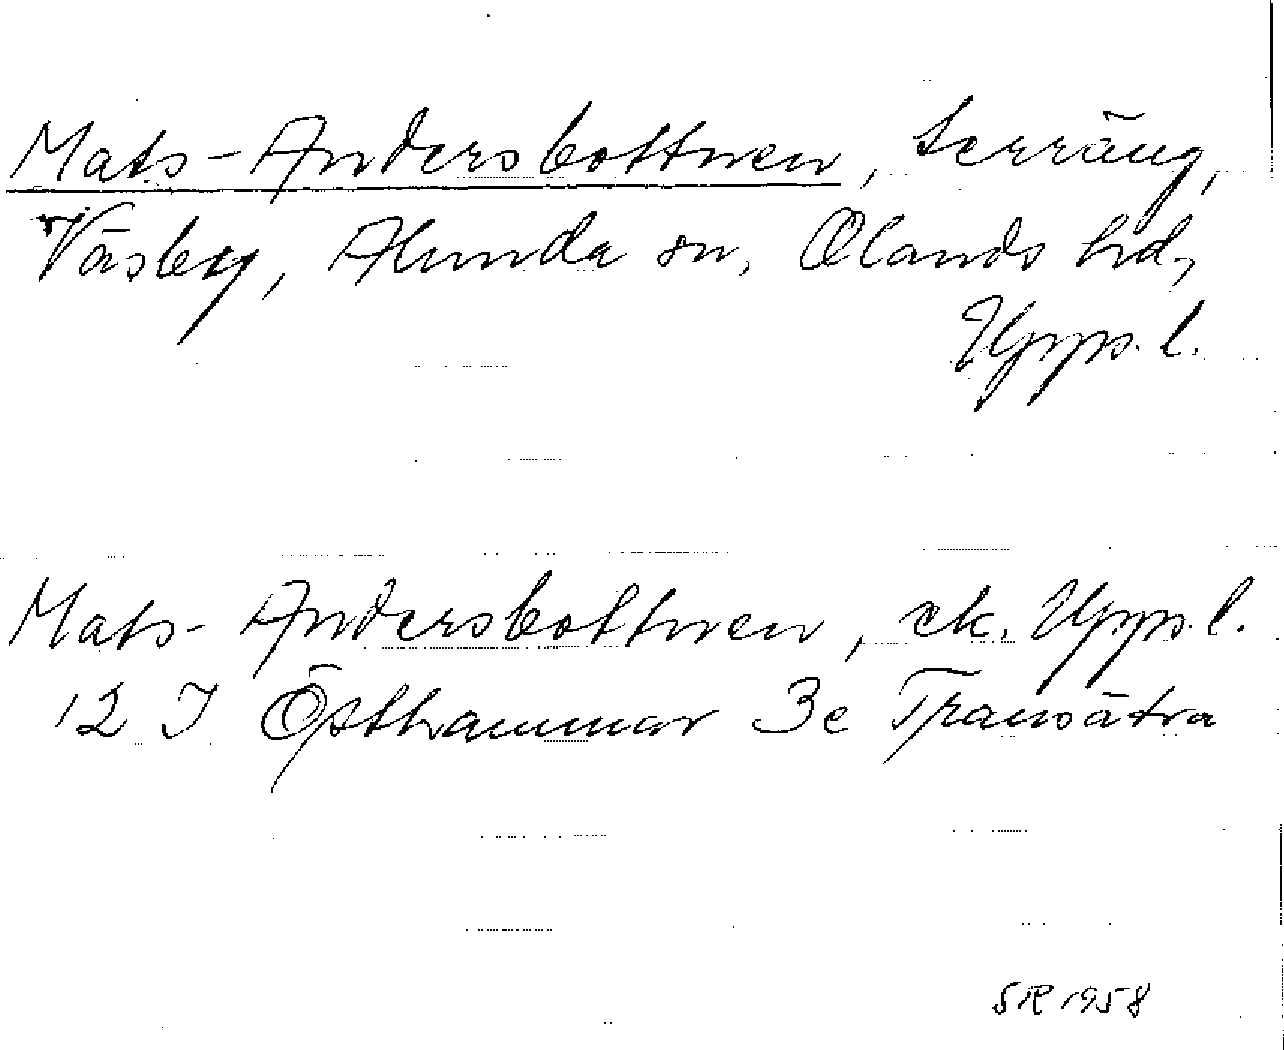 Mats-Andersbottnen, terräng,
Väsby, Alunda sn, Olands hd,
Upps. l.
Mats-Andersbottnen, ek. Upps. l.
12 I Östhammar 3e Transätra
SR 1958